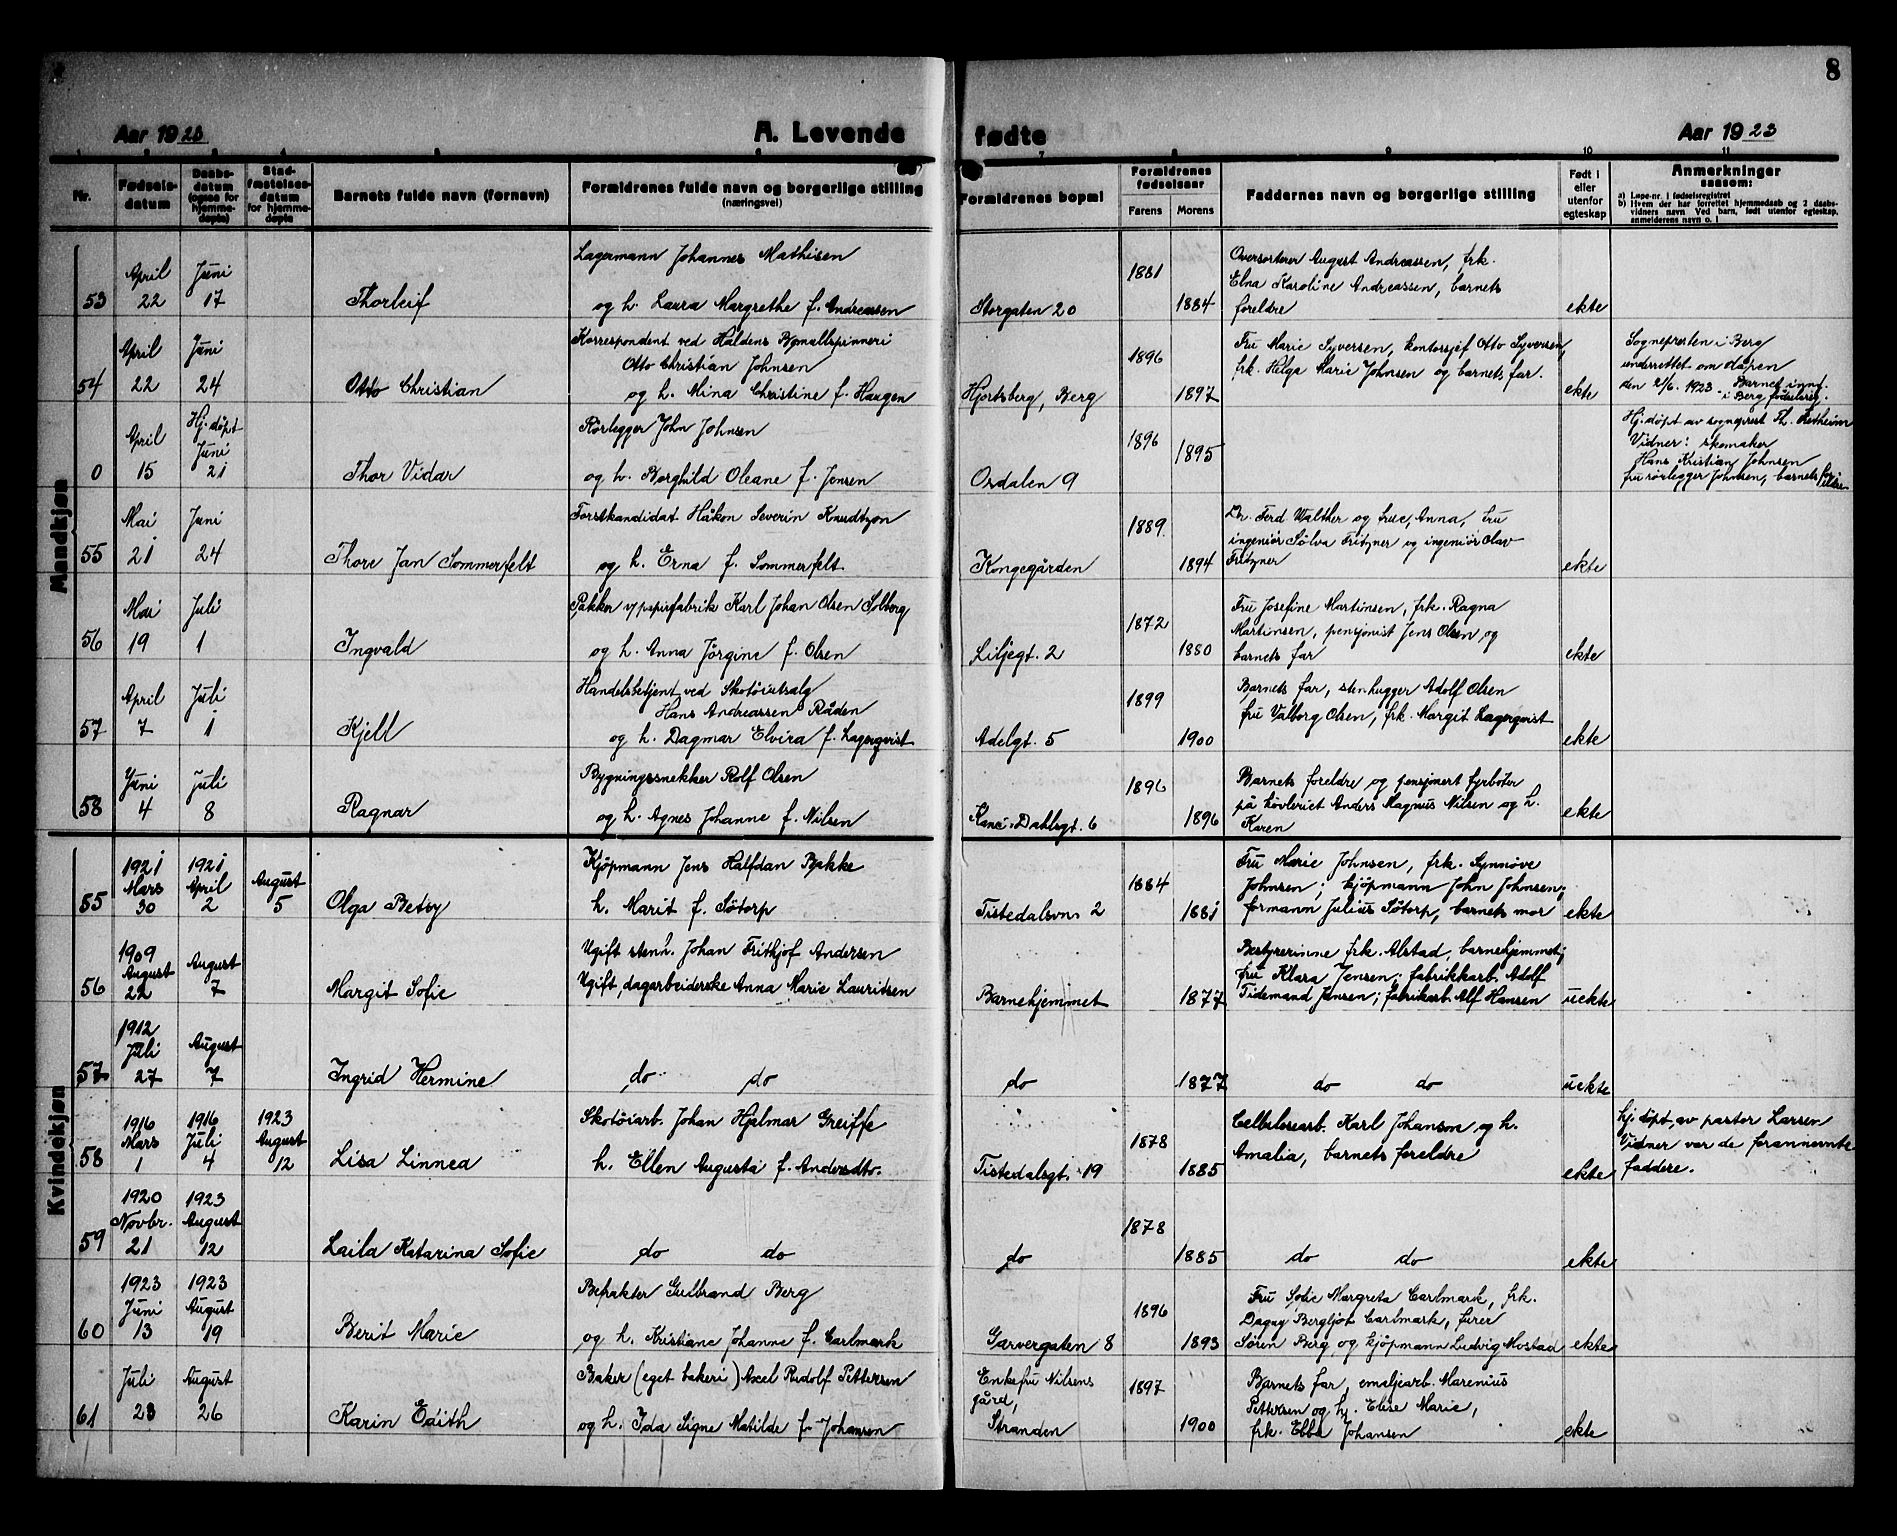 8
Aar 1923 A. Levende fødte Aar 1923
Nr. Fødselsdatum Daabsdatum (ogsaa for hjemmedøpte) Stadfæstelsesdatum for hjemmedøpte Barnets fulde navn (fornavn) Forældrenes fulde navn og borgerlige stilling (næringsvei) Forældrenes bopæl Forældrenes fødselsaar Farens Morens Faddernes navn og borgerlige stilling Født i eller utenfor egteskap Anmerkninger saasom:
a) Løpe-nr. i fødselsregistret
b) Hvem der har forrettet hjemmedaab og 2 daabsvidners navn Ved barn, født utenfor egteskap, anmelderens navn o. l
Mandkjøn
Lagermann Johannes Mathisen 1881 Oversorterer August Andreassen, frk.
April Juni Elna Karoline Andreassen, barnets
53 22 17 Thorleif og h. Laura Margrethe f. Andreassen Storgaten 20 1884 foreldre ekte
Korrespondent ved Haldens Bomullspinneri Fru Marie Syversen, kontorsjef Otto Syversen, Sognepresten i Berg
April Juni Otto Christian Johnsen 1896 frk. Helga Marie Johnsen og barnets far. underrettet om dåpen
54 22 24 Otto Christian og h. Mina Christine f. Haugen Hjortsberg, Berg 1897 ekte den 21/6. 1923. Barnet innf.
i Berg fødselsreg.
Hj. døpt Rørlegger John Johnsen 1896 Hj. døpt av sogneprest Th.
April Juni 1895 Vidner: skomaker
0 15 21 Thor Vidar og h. Borghild Oleane f. Jensen Osdalen 9 Hans Kristian Johnsen
fru rørlegger Johnsen, barnets
Mai Juni Forstkandidat Håkon Severin Knudtzon 1889. Dr. Ferd Walther og frue, Anna, fru
ingeniør Sølva Fritzner og ingeniør Olav
55 21 24 Thore Jan Sommerfelt og h. Erna f. Sommerfelt. Kongegården 1894 Fritzner ekte
Mai Juli Pakker v/papirfabrik Karl Johan Olsen Solberg 1872 Fru Josefine Martinsen, frk. Ragna
Martinsen, pensjonist Jens Olsen og
56 19 1 Ingvald og h. Anna Jørgine f. Olsen Liljegt. 2 1880 barnets far ekte
April Juli Handelsbetjent ved Skotøiutsalg 1899 Barnets far, stenhugger Adolf Olsen
Hans Andreassen Råden fru Valborg Olsen, frk. Margit Lagerqvist
57 7 1 Kjell og h. Dagmar Elvira f. Lagerqvist Adelgt. 5 1900 ekte
Juni Juli Bygningssnekker Rolf Olsen 1896 Barnets foreldre og pensjonert fyrbøter
på høvleriet Anders Magnus Nilsen og h.
58 4 8 Ragnar og h. Agnes Johanne f. Nilsen Dahlsgt. 6 1896 Karen ekte
Kvindekjøn
1921 1921 Kjøpmann Jens Halfdan Bakke Fru Marie Johnsen, frk. Synnøve
Mars April August 1884 Johnsen; kjøpmann John Johnsen;
55 30 2 5 Olga Betsy h. Marit f. Søtorp Tistedalsvn 2 1881 formann Julius Søtorp, barnets mor ekte
1909 Ugift stenh. Johan Frithjof Andersen Bestyrerinne frk. Alstad, barnehjemmet;
August August fru Klara Jensen; fabrikkarb. Adolf
56 22 7 Margit Sofie Ugift, dagarbeiderske Anna Marie Lauritsen Barnehjemmet 1877 Tidemand Jensen; fabrikarb. Alf Hansen uekte
1912
Juli August
57 27 7 Ingrid Hermine do do do 1877 do do uekte
1916 1916 1923 Skotøiarb. Johan Hjalmar Greiffe Cellulosearb. Karl Johanson og h. hj. døpt, av pastor Larsen
Mars Juli August 1878 Amalia, barnets foreldre Vidner var de forannevnte
58 1 4 12 Lisa Linnea h. Ellen Augusta f. Andersdtr. Tistedalsgt. 19 1885 ekte faddere.
1920 1923
Novbr. August 1878
59 21 12 Laila Katarina Sofie do do do 1885 do do ekte
1923 1923 Befrakter Gulbrand Berg Fru Sofie Margreta Carlmark, frk.
Juni August 1896 Dagny Bergljot Carlmark, fører
60 13 19 Berit Marie og h. Kristiane Johanne f. Carlmark Garvergaten 8 1893 Søren Berg og kjøpmann Ludvig Mostad ekte
Juli August Baker (eget bakeri) Axel Rudolf Pettersen Enkefru Nilsens 1897 Barnets far, emaljearb. Marenius
gård, Pettersen og h. Elise Marie,
61 23 26 Karin Edith og h. Ida Signe Matilde f. Johansen Stranden 1900 frk. Ebba Johansen ekte